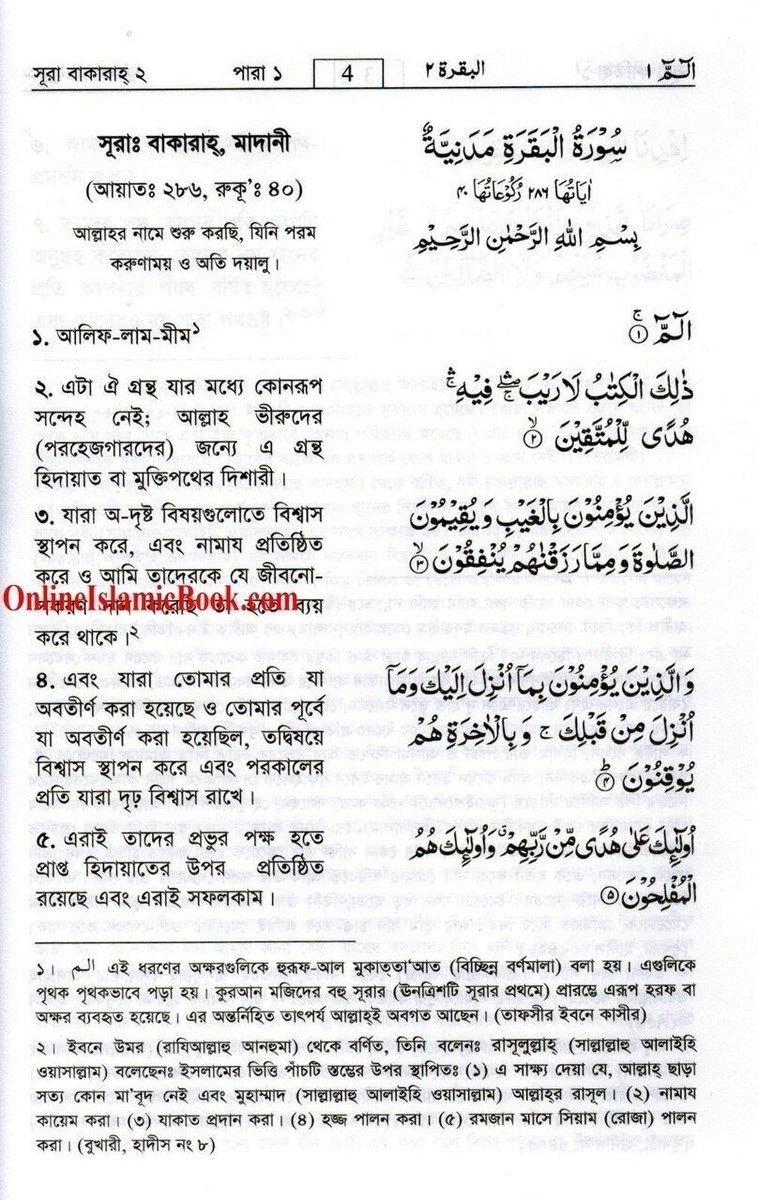 সূরা বাকারাহ্ ২ পারা ১ 4 البقرة ٢ الٓمّٓ ١
সূরাঃ বাকারাহ্, মাদানী
(আয়াতঃ ২৮৬, রুকূ'ঃ ৪০)
আল্লাহর নামে শুরু করছি, যিনি পরম
করুণাময় ও অতি দয়ালু।
سُوْرَةُ الْبَقَرَةِ مَدَنِيَّةٌ
اٰيَاتُهَا ٢٨٦ رُكُوْعَاتُهَا ٤٠
بِسْمِ اللهِ الرَّحْمٰنِ الرَّحِيْمِ
১. আলিফ-লাম-মীম১
الٓمّٓ ۚ ١
২. এটা ঐ গ্রন্থ যার মধ্যে কোনরূপ
সন্দেহ নেই; আল্লাহ ভীরুদের
(পরহেজগারদের) জন্যে এ গ্রন্থ
হিদায়াত বা মুক্তিপথের দিশারী।
ذٰلِكَ الْكِتٰبُ لَا رَيْبَ ۛۖ فِيْهِ ۛۚ
هُدًى لِّلْمُتَّقِيْنَ ۙ ٢
৩. যারা অ-দৃষ্ট বিষয়গুলোতে বিশ্বাস
স্থাপন করে, এবং নামায প্রতিষ্ঠিত
করে ও আমি তাদেরকে যে জীবনো-
OnlineIslamicBook.com
পকরণ দান করেছি তা হতে ব্যয়
করে থাকে।২
الَّذِيْنَ يُؤْمِنُوْنَ بِالْغَيْبِ وَيُقِيْمُوْنَ
الصَّلٰوةَ وَمِمَّا رَزَقْنٰهُمْ يُنْفِقُوْنَ ۙ ٣
৪. এবং যারা তোমার প্রতি যা
অবতীর্ণ করা হয়েছে ও তোমার পূর্বে
যা অবতীর্ণ করা হয়েছিল, তদ্বিষয়ে
বিশ্বাস স্থাপন করে এবং পরকালের
প্রতি যারা দৃঢ় বিশ্বাস রাখে।
وَالَّذِيْنَ يُؤْمِنُوْنَ بِمَآ اُنْزِلَ اِلَيْكَ وَمَآ
اُنْزِلَ مِنْ قَبْلِكَ ج وَبِالْاٰخِرَةِ هُمْ
يُوْقِنُوْنَ ؕ ٤
৫. এরাই তাদের প্রভুর পক্ষ হতে
প্রাপ্ত হিদায়াতের উপর প্রতিষ্ঠিত
রয়েছে এবং এরাই সফলকাম।
اُولٰٓئِكَ عَلٰى هُدًى مِّنْ رَّبِّهِمْ ۙ وَاُولٰٓئِكَ هُمُ
الْمُفْلِحُوْنَ ٥
১। الـم এই ধরণের অক্ষরগুলিকে হুরূফ-আল মুকাত্তা'আত (বিচ্ছিন্ন বর্ণমালা) বলা হয়। এগুলিকে
পৃথক পৃথকভাবে পড়া হয়। কুরআন মজিদের বহু সূরার (ঊনত্রিশটি সূরার প্রথমে) প্রারম্ভে এরূপ হরফ বা
অক্ষর ব্যবহৃত হয়েছে। এর অন্তর্নিহিত তাৎপর্য আল্লাহ্ই অবগত আছেন। (তাফসীর ইবনে কাসীর)
২। ইবনে উমর (রাযিআল্লাহু আনহুমা) থেকে বর্ণিত, তিনি বলেনঃ রাসূলুল্লাহ্ (সাল্লাল্লাহু আলাইহি
ওয়াসাল্লাম) বলেছেনঃ ইসলামের ভিত্তি পাঁচটি স্তম্ভের উপর স্থাপিতঃ (১) এ সাক্ষ্য দেয়া যে, আল্লাহ ছাড়া
সত্য কোন মা'বূদ নেই এবং মুহাম্মাদ (সাল্লাল্লাহু আলাইহি ওয়াসাল্লাম) আল্লাহ্র রাসূল। (২) নামায
কায়েম করা। (৩) যাকাত প্রদান করা। (৪) হজ্জ পালন করা। (৫) রমজান মাসে সিয়াম (রোজা) পালন
করা। (বুখারী, হাদীস নং ৮)